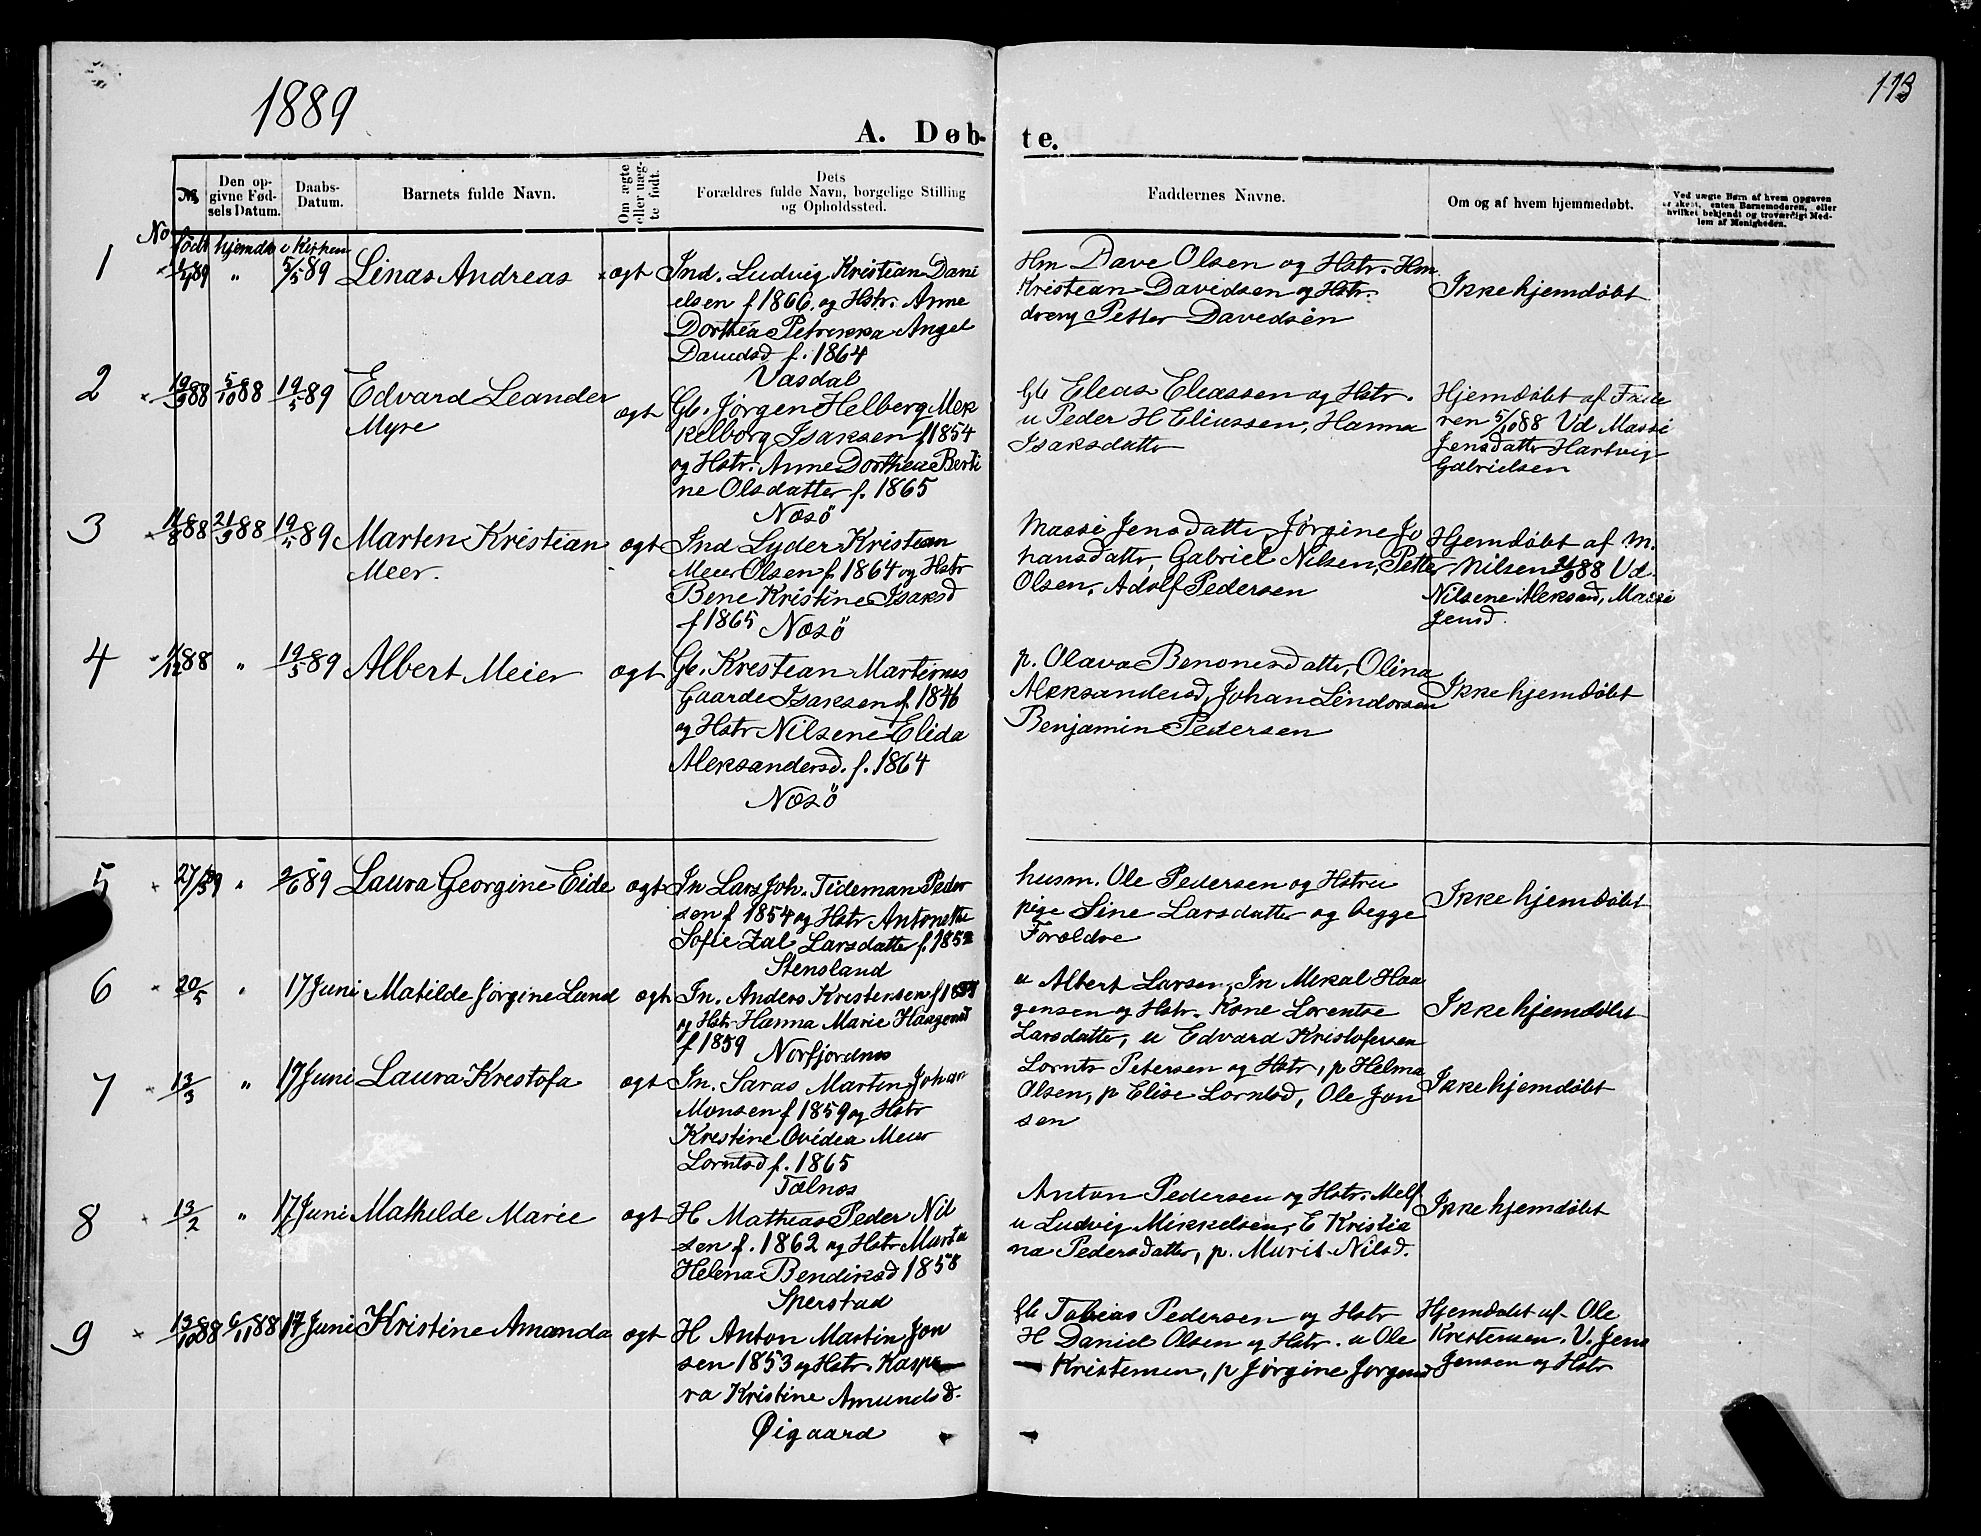 1889
113
A. Døb-
te.
No
Den op-
givne Fød-
sels Datum.
Daabs-
Datum.
Barnets fulde Navn.
Om ægte
eller uæg-
te født.
Dets
Forældres fulde Navn, borgelige Stilling
og Opholdssted.
Faddernes Navne.
Om og af hvem hjemmedøbt.
Ved uægte Børn af hvem Opgaven
er skeet, enten Barnemoderen, eller
hvilket bekjendt og troværdigt Med-
lem af Menigheden.
født hjemdø i Kirken
1 89 " 5/5 89 Linas Andreas ægt
Ind. Ludvig Kristian Dani
elsen f 1866. og Hstr. Anne
Dorthea Petrikka Angel
Davidsd f. 1864
Vasdal
Hm Dave Olsen og Hstr. Hm.
Kristian Davidsen og Hstr.
dreng Petter Davedsen
Ikke hjemdøbt
2 19/9 88 5/10 88 19/5 89 Edvard Leander
Myre
ægt
Gb. Jørgen Helberg Mek
kelborg Isaksen f 1854
og Hstr. Anne Dorthea Berti
ne Olsdatter f. 1865
Næsö
Gb Eleas Eleassen og Hstr.
u Peder H Eliassen, Hanna
Isaksdatter
Hjemdøbt af Fade
ren 5/10 88 Vd Massi
Jensdatter Hartvig
Gabrielsen
3 11/8 88 21/9 88 19/5 89 Marten Kristian
Meer.
ægt
Ind Lyder Kristian
Meer Olsen f. 1864 og Hstr
Bene Kristine Isaksd
f 1865 Næsö
Massi Jensdatter, Jørgine Jo
hansdatter, Gabriel Nilsen, Petter
Olsen, Adolf Pedersen
Hjemdøbt af M.
Nilsen 21/9 88 Vd.
Nilsene Aleksand, Massi
Jensd.
4 1/12 88 " 19/5 89 Albert Meier ægt
Gb. Krestian Martinus
Gaarde Isaksen f. 1846
og Hstr Nilsene Elida
Aleksandersd. f. 1864
Næsö
p. Olava Benonisdatter, Olina
Aleksandersd, Johan Lindorsen
Benjamin Pedersen
Ikke hjemdøbt
5 27/3 89 " 2/6 89 Laura Georgine Eide ægt
In Lars Joh. Tideman Peder
sen f 1854 og Hstr Antonette
Sofie Zal Larsdatter f. 185
Stensland
husm. Ole Pedersen og Hstru
pige Sine Larsdatter og begge
Forældre
Ikke hjemdøbt
6 20/5 " 17 Juni Matilde Jørgine Lund ægt
In. Anders Kristensen f 18
og Hstr Hanna Marie Haagensd
f 1859 Norfjordnes
u Albert Larsen, In Mikal Haa
gensen og Hstr. Kone Lorentse
Larsdatter, u Edvard Kristofersen
Ikke hjemdøbt
7 13/3 " 17 Juni Laura Krestofa ægt
In. Saras Martin Johan
Monsen f 1859 og Hstr
Krestine Ovidea Meier
Lorntsd f. 1865
Tælnes
Lornts Petersen og Hstr, p Helma
Olsen, p Elise Lorntsd, Ole Jon
sen
Ikke hjemdøbt
8 13/2 " 17 Juni Mathilde Marie ægt
H Mathias Peder Nil
sen f. 1862 og Hstr Marta
Helena Bendiksd 1858
Sperstad
Anton Pedersen og Hstr. Melf
u Ludvig Mikkelsen, E Kristia
na Pedersdatter, p. Marit Nilsd.
Ikke hjemdøbt
9 13/10 88 6/11 88 17 Juni Kristine Amanda ægt
H Anton Martin Jon
sen 1853 og Hstr. Kaspa
ra Kristine Amundsd.
Øigaard
Gb Tobias Pedersen og Hstr
H Daniel Olsen og Hstr. u Ole
Kristensen, p Jørgine Jørgensd
Hjemdøbt af Ole
Krestensen. V. Jens
Jensen og Hstr